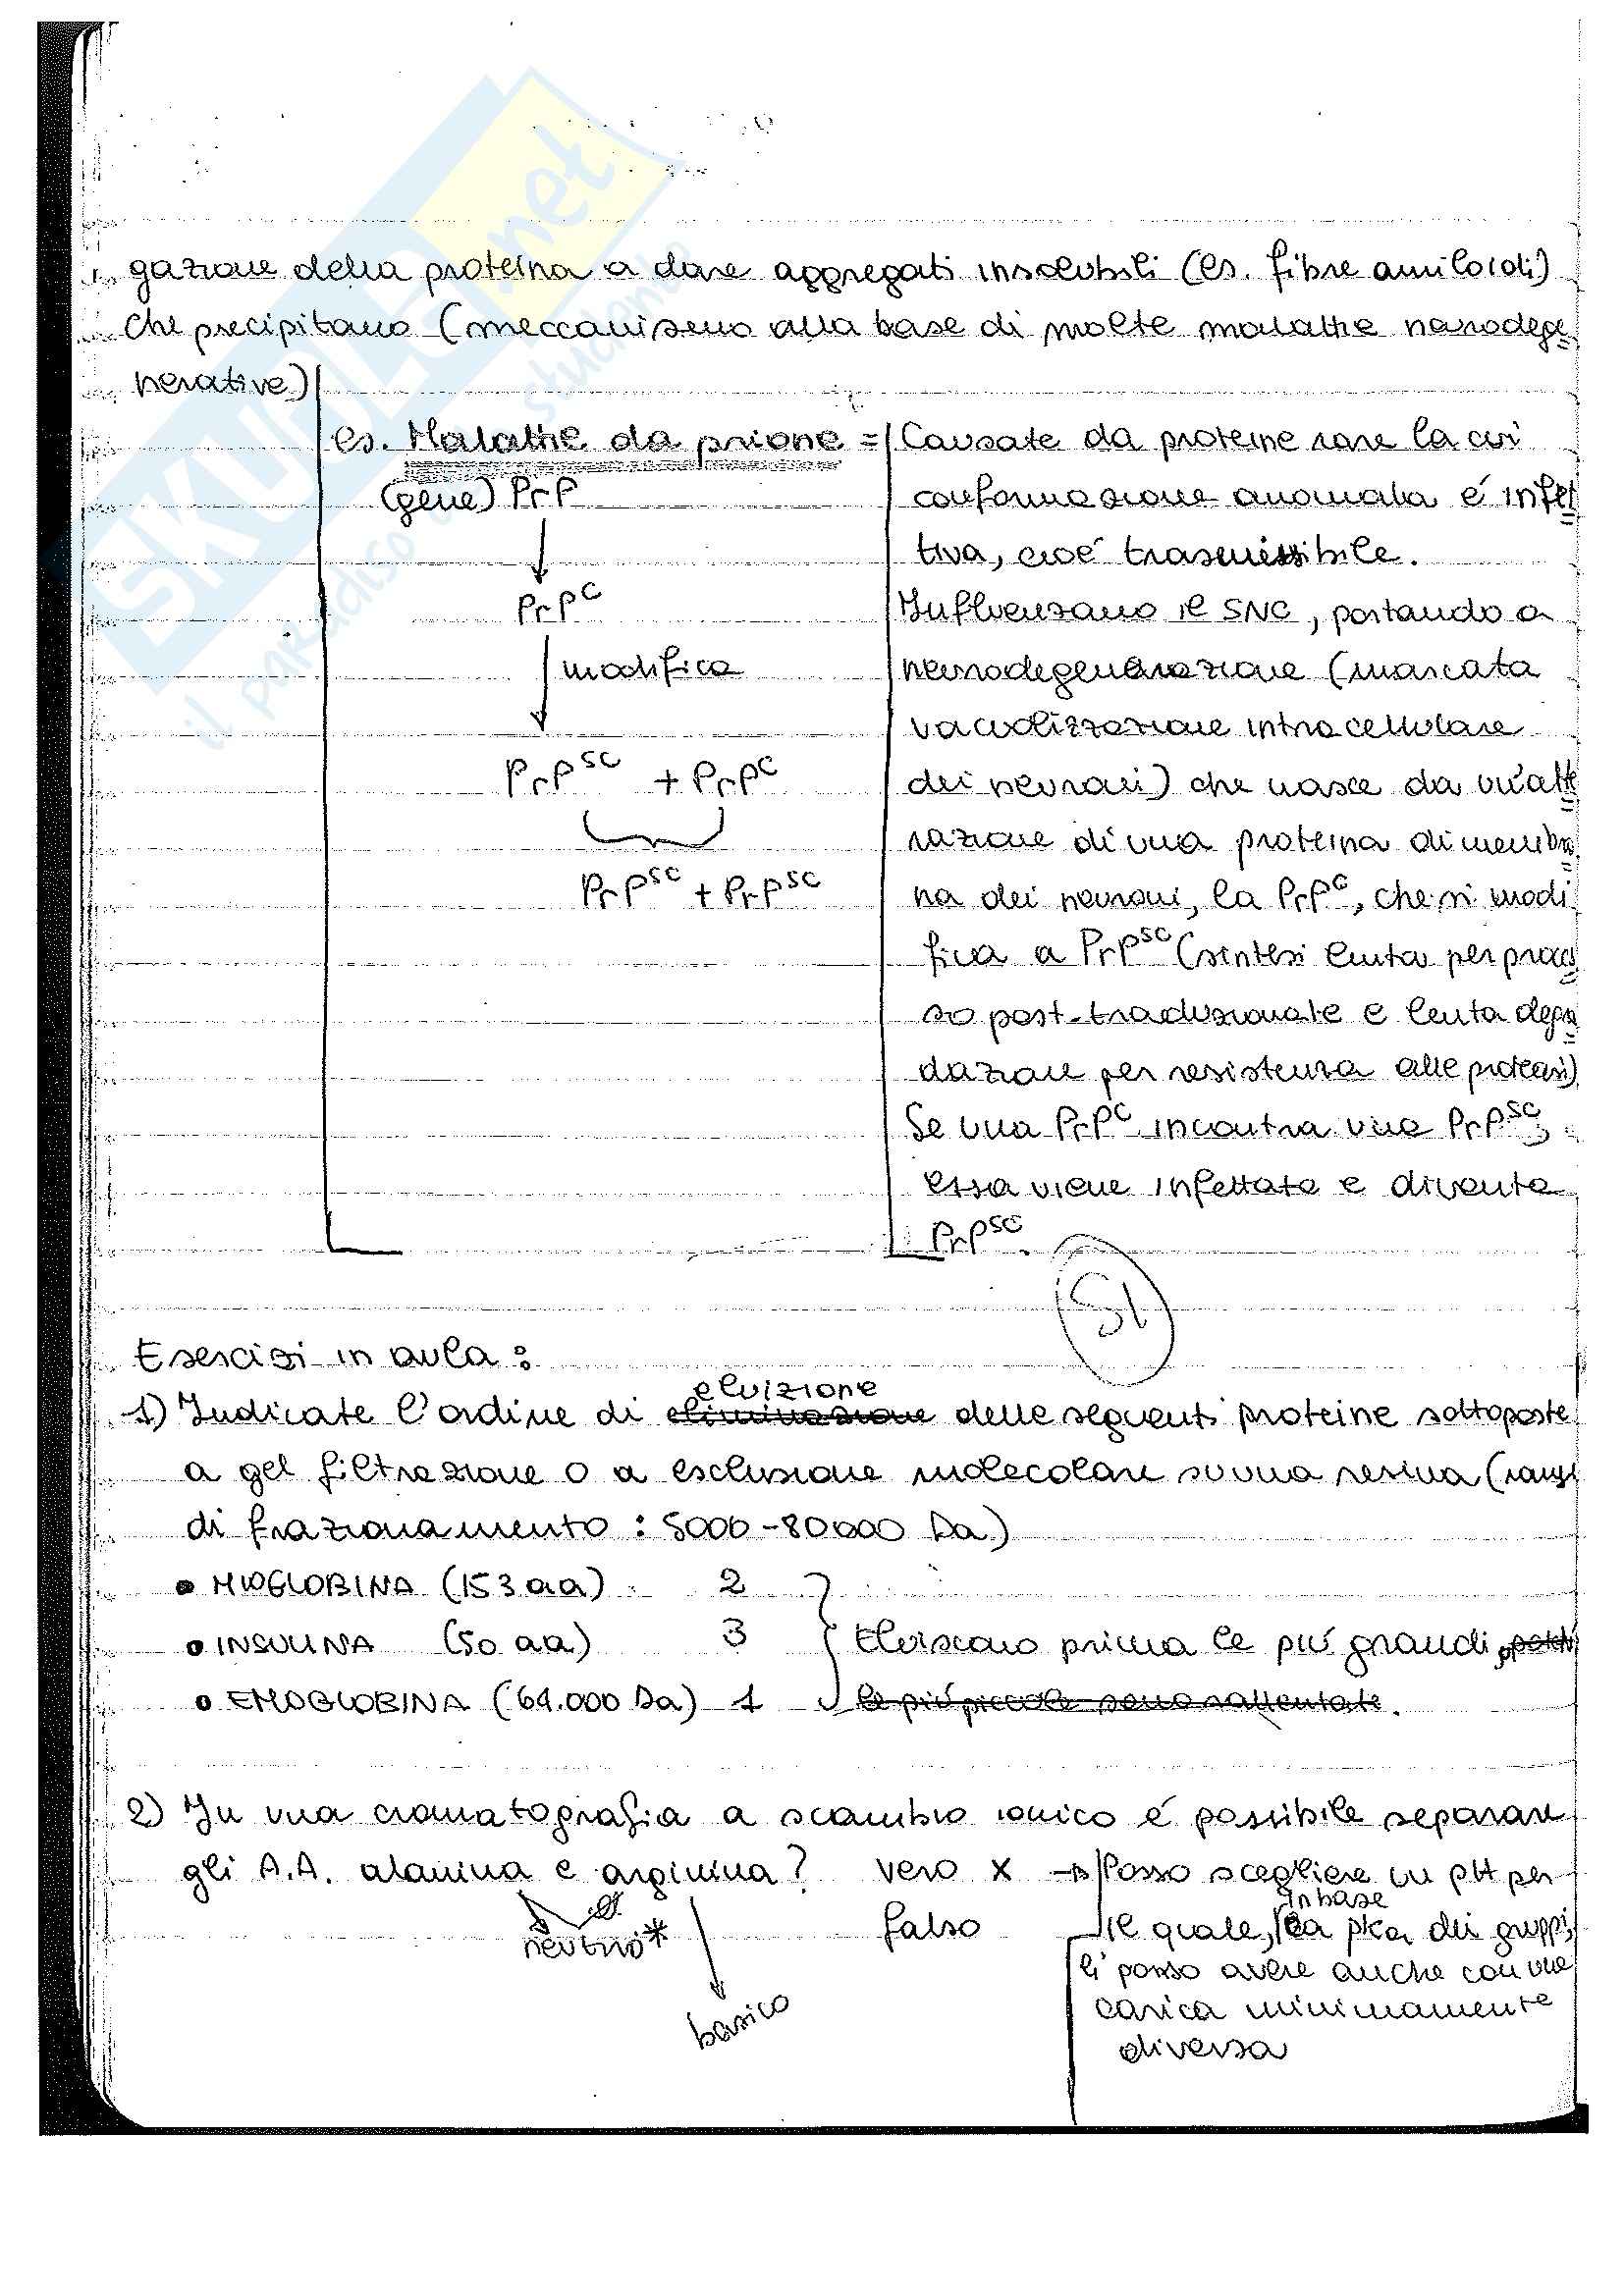 gazione della proteina a dare aggregati insolubili (es. fibre amiloidi)
che precipitano (meccanismo alla base di molte malattie neurodege
nerative)
es. Malattie da prione =
(gene) PrP
PrP^C
modifica
PrP^SC + PrP^C
PrP^SC + PrP^SC
Causate da proteine rare la cui
conformazione anomala é infet
tiva, cioé trasmissibile.
Influenzano il SNC, portando a
neurodegenerazione (marcata
vacuolizzazione intracellulare
dei neuroni) che nasce da un'alte
razione di una proteina di membra
na dei neuroni, la PrP^C, che si modi
fica a PrP^SC (sintesi lenta per proces
so post-traduzionale e lenta degra
dazione per resistenza alle proteasi)
Se una PrP^C incontra una PrP^SC,
essa viene infettata e diventa
PrP^SC.
SI
Esercizi in aula:
elvizione
1) Indicate l'ordine di eliminazione delle seguenti proteine sottoposte
a gel filtrazione o a esclusione molecolare su una resina (range
di frazionamento: 5000-80000 Da)
• MIOGLOBINA (153 aa) 2
• INSULINA (50 aa) 3
Eluiscono prima le piú grandi,
• EMOGLOBINA (64.000 Da) 1
le piú piccole sono rallentate.
2) In una cromatografia a scambio ionico é possibile separare
gli A.A. alanina e arginina? vero X → Posso scegliere un pH per
in base
neutro* falso il quale, la pka dei gruppi,
li posso avere anche con una
carica minimamente
basico
diversa
SKUOLA.net
il paradiso dello studente